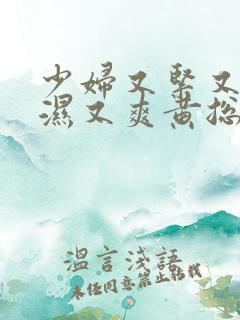 少婦又緊又
濕又爽黄总
溫言淺語
未经同意禁止转载